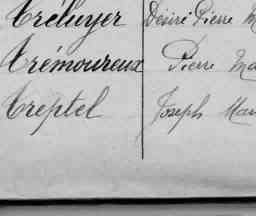 Tréluyer Désiré Pierre M
Trémoureux Pierre Ma
Treptel Joseph Mar